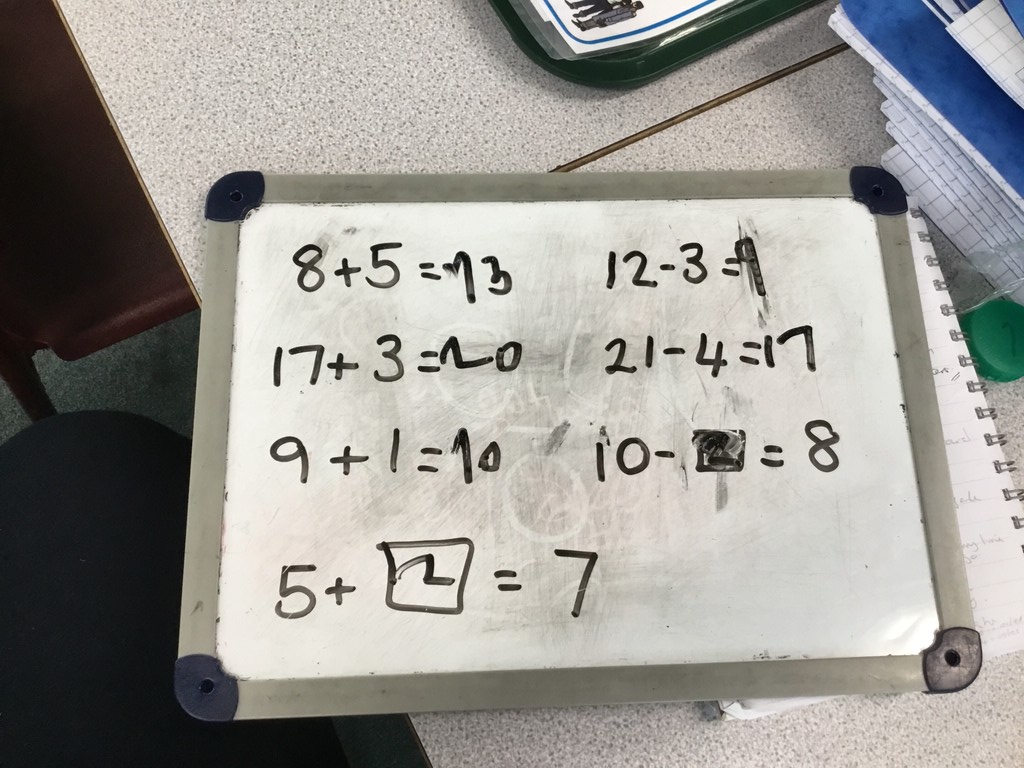 8+5=13 12-3=9
17+3=20 21-4=17
9+1=10 10-2=8
5+2=7